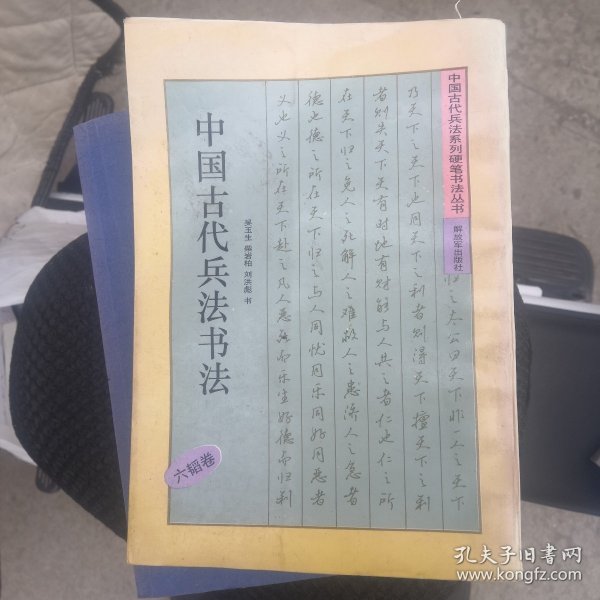 中国古代兵法系列硬笔书法丛书
解放军出版社
中国古代兵法书法
吴玉生 柴岩柏 刘洪彪 书
六韬卷
归之太公曰天下非一人之天下
乃天下之天下也同天下之利者则得天下擅天下之利
者则失天下天有时地有财能与人共之者仁也仁之所
在天下归之免人之死解人之难救人之患济人之急者
德也德之所在天下归之与人同忧同乐同好同恶者
义也义之所在天下赴之凡人恶死而乐生好德而归利
孔夫子旧书网
www.kongfz.com